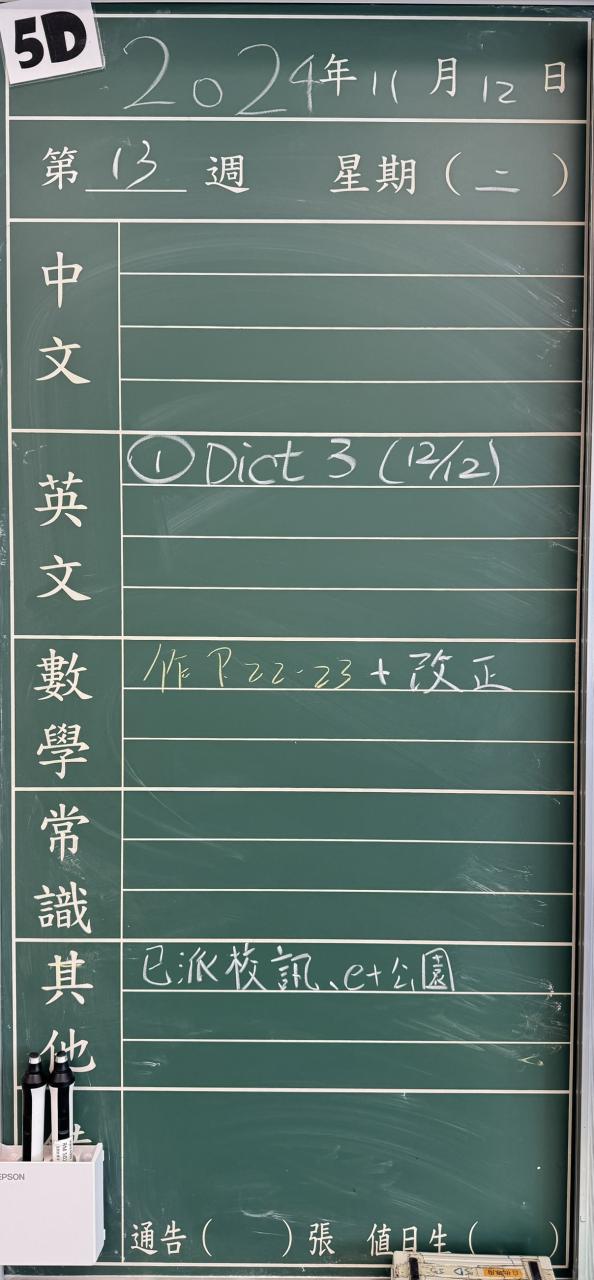 5D
2024年11月12日
第13週 星期(二)
中文
英文
① Dict 3 (12/12)
數學
作 P.22-23 + 改正
常識
其他
已派校訊、e+公園
EPSON
通告( )張 值日生( )